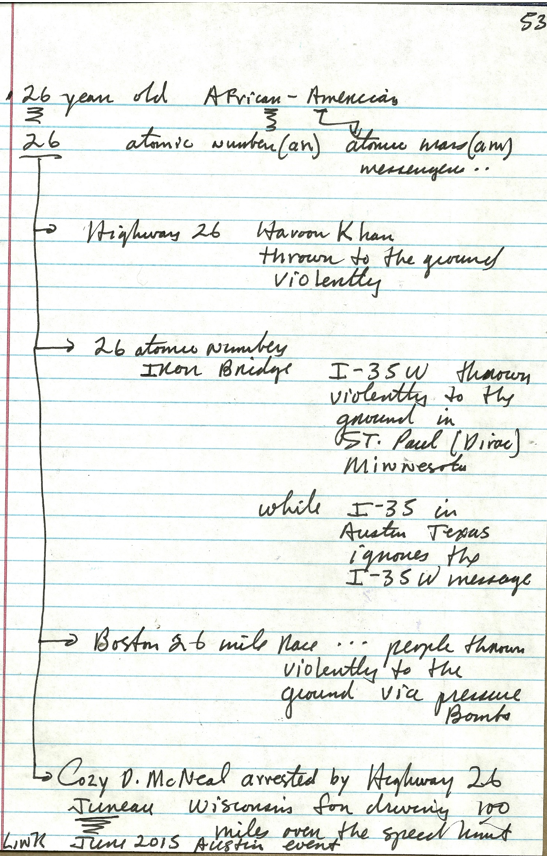 53
26 year old African-American
26 atomic number (an) atomic mass (am)
messenger..
Highway 26 Haroon Khan
thrown to the ground
violently
26 atomic number
Iron Bridge I-35W thrown
violently to the
ground in
ST. Paul (Dirac)
Minnesota
while I-35 in
Austin Texas
ignores the
I-35W message
Boston 26 mile race ... people thrown
violently to the
ground via pressure
Bombs
Cozy D. McNeal arrested by Highway 26
Juneau Wisconsin for driving 100
miles over the speed limit
LINK June 2015 Austin event